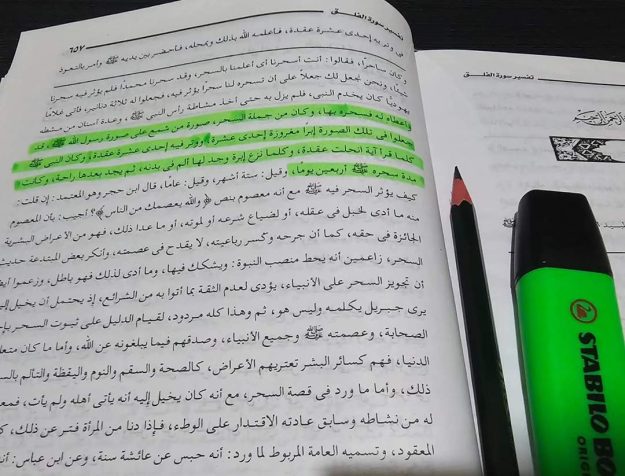 تفسير سورة الفلق
٦٥٧
في وتر به إحدى عشرة عقدة، فأعلمه الله بذلك وبمحله، فأحضر بين يديه ﷺ وأمر بالتعوذ
وكان ساحرًا، فقالوا: أنت أسحرنا أي أعلمنا بالسحر، وقد سحرنا محمدًا فلم يؤثر فيه سحرنا
شيئًا، ونحن نجعل لك جعلاً على أن تسحره لنا سحرًا يؤثر فيه، فجعلوا له ثلاثة دنانير، فأتى غلامًا
يهوديًا كان يخدم النبي، فلم يزل به حتى أخذ مشاطة رأس النبي ﷺ، وعدة أسنان من مشطه
وأعطاه له فسحره بها، وكان من جملة السحر، صورة من شمع على صورة رسول الله ﷺ، قد
جعلوا في تلك الصورة إبرًا مغروزة إحدى عشرة، ووتر فيه إحدى عشرة عقدة، وكان النبي ﷺ
كلما قرأ آية انحلت عقدة، وكلما نزع إبرة وجد لها ألم في بدنه، ثم يجد بعدها راحة، وكانت
مدة سحره ﷺ أربعين يومًا، وقيل: ستة أشهر، وقيل: عامًا، قال ابن حجر وهو المعتمد: إن قلت:
كيف يؤثر السحر فيه ﷺ مع أنه معصوم بنص ﴿والله يعصمك من الناس﴾؟ أجيب: بأن المعصوم
منه ما أدى لخبل في عقله، أو لضياع شرعه أو لموته، أو ما عدا ذلك، فهو من الأعراض البشرية
الجائزة في حقه، كما أن جرحه وكسر رباعيته، لا يقدح في عصمته، وأنكر بعض المبتدعة حديث
السحر، زاعمين أنه يحط منصب النبوة: ويشكك فيها، وما أدى لذلك فهو باطل، وزعموا أيضًا
أن تجويز السحر على الأنبياء، يؤدي لعدم الثقة بما أتوا به من الشرائع، إذ يحتمل أن يخيل إليه
يرى جبريل يكلمه وليس هو، ثم وهذا كله مردود، لقيام الدليل على ثبوت السحر
الصحابة، وعصمته ﷺ وجميع الأنبياء، وصدقهم فيما يبلغونه عن الله، وأما ما كان
الدنيا، فهم كسائر البشر تعتريهم الأعراض، كالصحة والسقم والنوم واليقظة والتألم
ذلك، وأما ما ورد في قصة السحر، مع أنه كان يخيل إليه أنه يأتي أهله ولم يأت،
له من نشاطه وسابق عادته الاقتدار على الوطء، فإذا دنا من المرأة فتر عن ذلك،
المعقود، وتسميه العامة المربوط لما ورد: أنه حبس عن عائشة سنة، وعن ابن عباس:
تفسير سورة الفلق
STABILO BO
ORIGIN